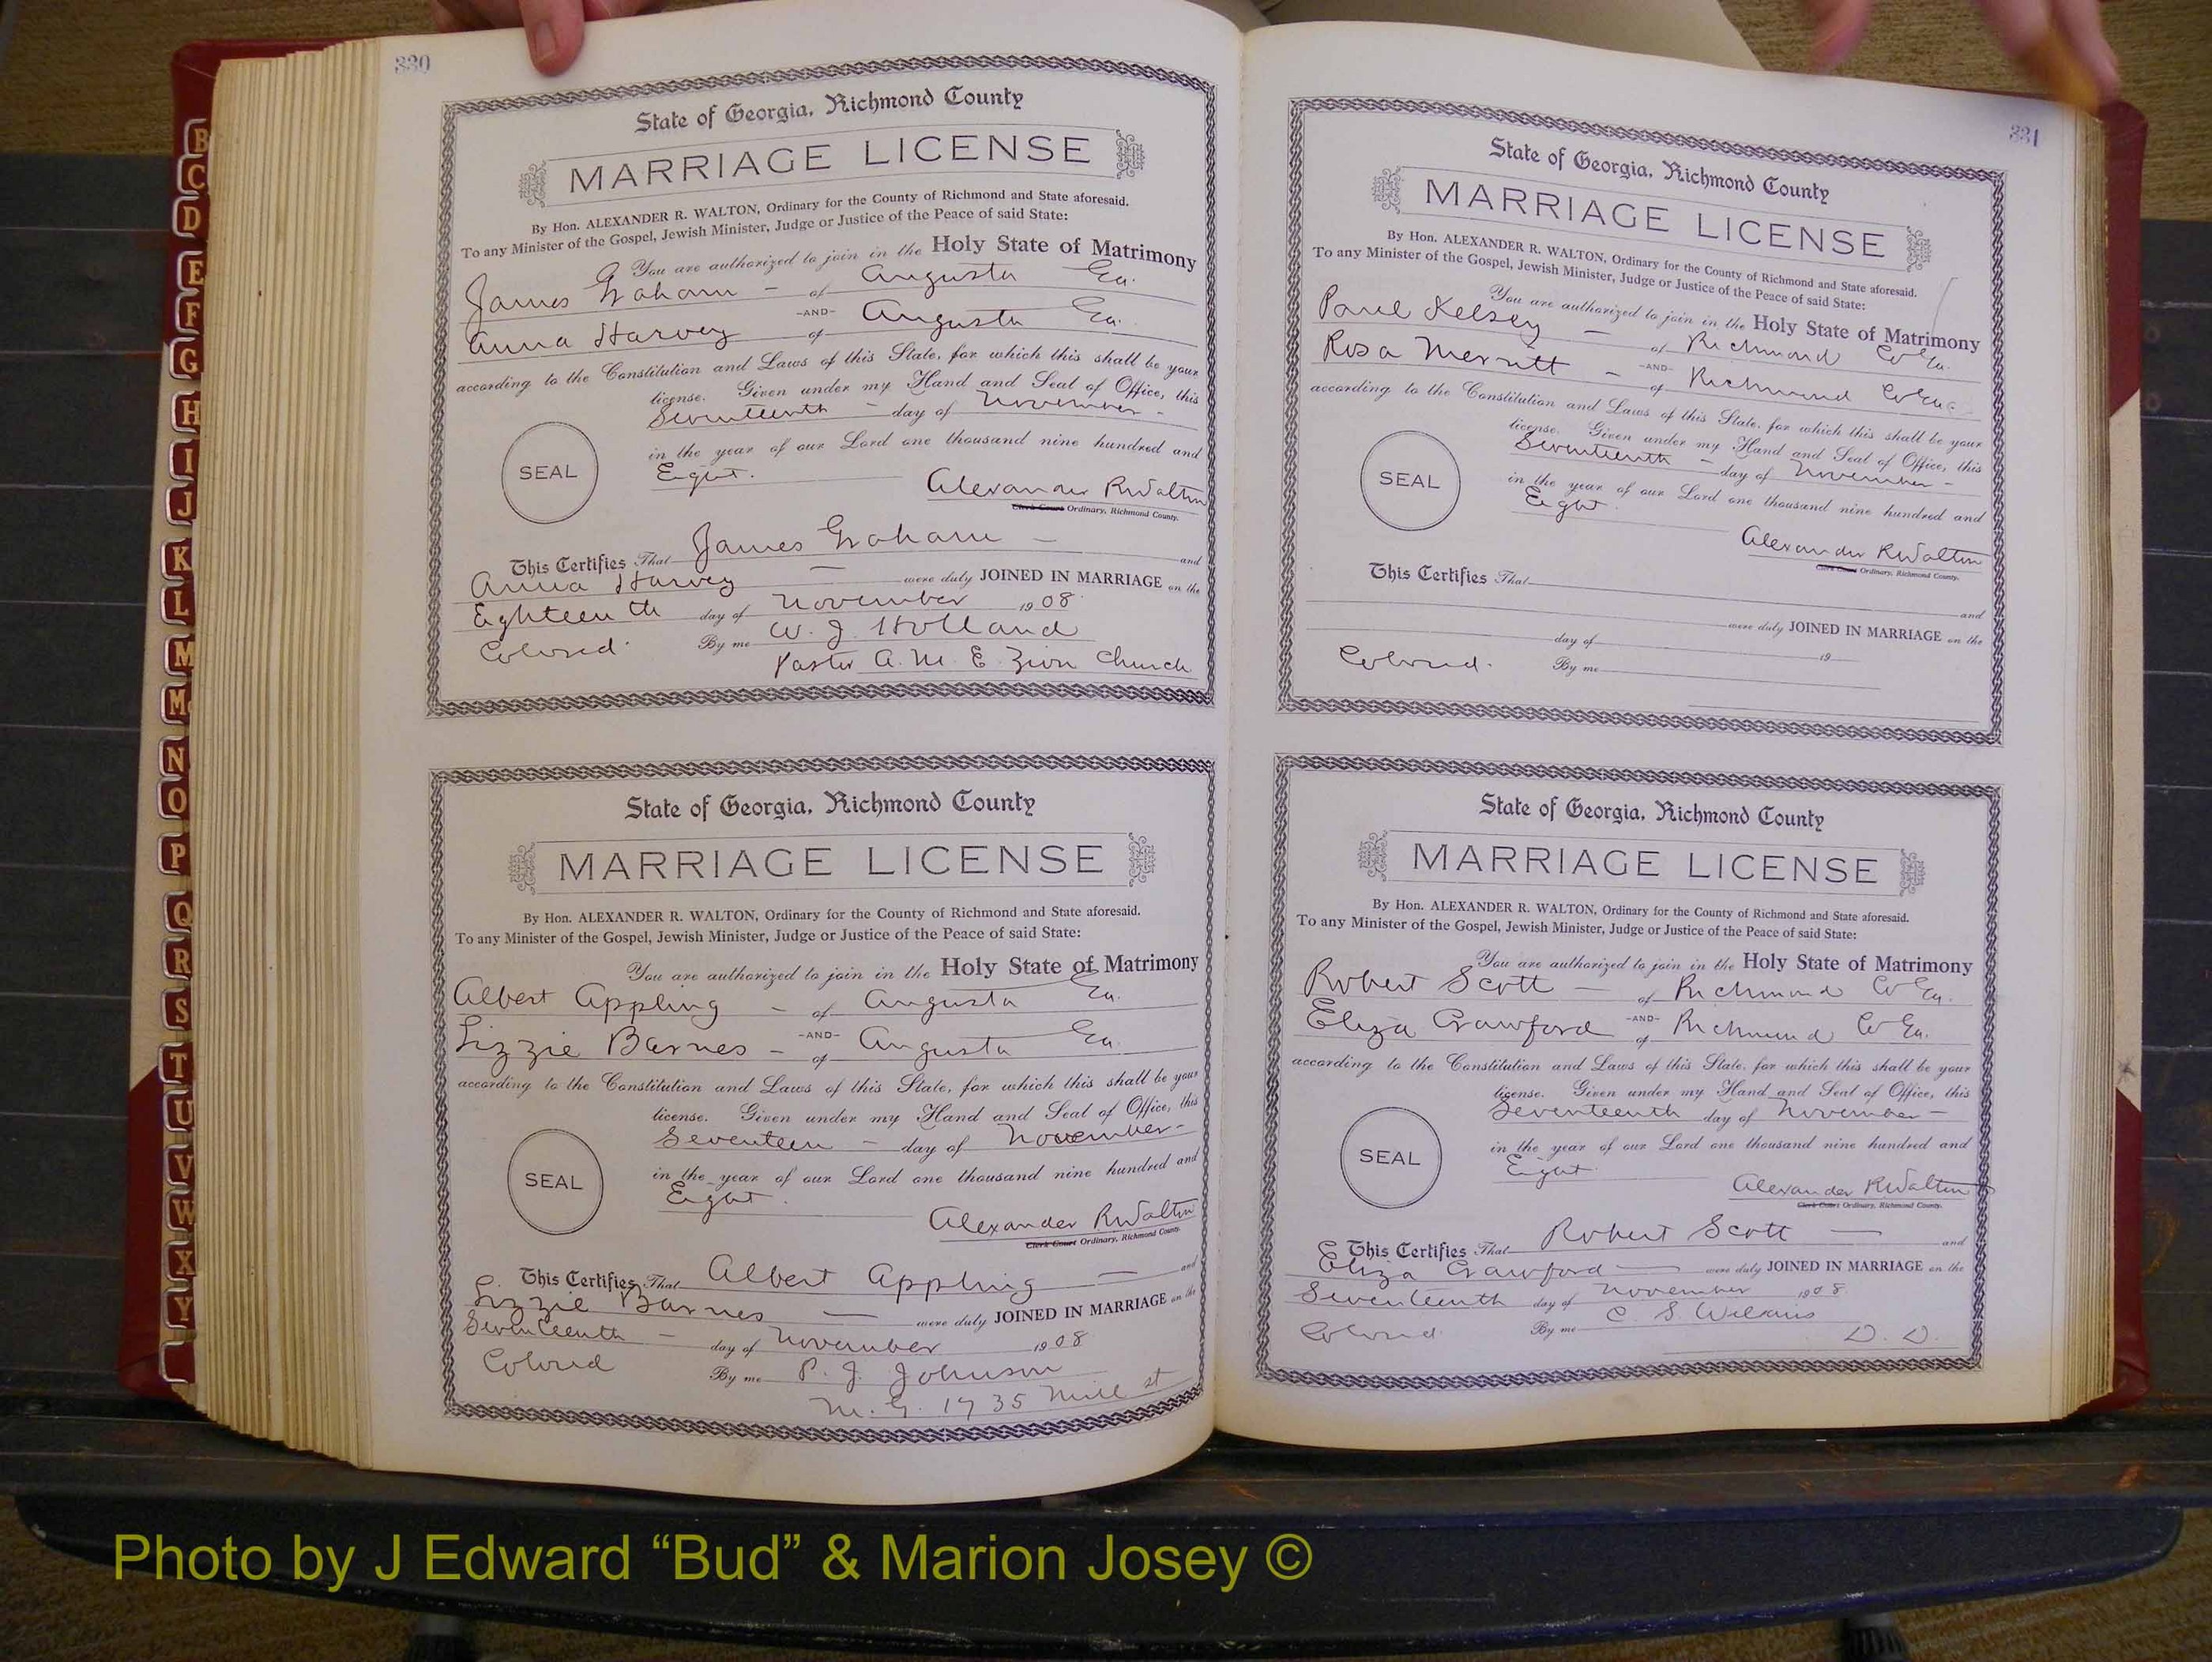 B
C
D
E
F
G
H
I
J
K
L
M
Mc
N
O
P
Q
R
S
T
U
V
W
X
Y
330
State of Georgia, Richmond County
MARRIAGE LICENSE
By Hon. ALEXANDER R. WALTON, Ordinary for the County of Richmond and State aforesaid.
To any Minister of the Gospel, Jewish Minister, Judge or Justice of the Peace of said State:
You are authorized to join in the Holy State of Matrimony
James Graham - of Augusta Ga.
-AND-
Anna Harvey of Augusta Ga.
according to the Constitution and Laws of this State, for which this shall be your
license. Given under my Hand and Seal of Office, this
Seventeenth - day of November -
in the year of our Lord one thousand nine hundred and
Eight.
SEAL
Alexander R Walton
Clerk Court Ordinary, Richmond County.
This Certifies That James Graham - and
Anna Harvey - were duly JOINED IN MARRIAGE on the
Eighteenth day of November 1908
Colored. By me W. J. Holland
Pastor A. M. E Zion Church
State of Georgia, Richmond County
MARRIAGE LICENSE
By Hon. ALEXANDER R. WALTON, Ordinary for the County of Richmond and State aforesaid.
To any Minister of the Gospel, Jewish Minister, Judge or Justice of the Peace of said State:
You are authorized to join in the Holy State of Matrimony
Albert Appling - of Augusta Ga.
-AND-
Lizzie Barnes - of Augusta Ga.
according to the Constitution and Laws of this State, for which this shall be your
license. Given under my Hand and Seal of Office, this
Seventeen - day of November -
in the year of our Lord one thousand nine hundred and
Eight.
SEAL
Alexander R Walton
Clerk Court Ordinary, Richmond County.
This Certifies That Albert Appling - and
Lizzie Barnes - were duly JOINED IN MARRIAGE on the
Seventeenth - day of November 1908
Colored By me P. J. Johnson
M. G. 1735 Mill st
331
State of Georgia, Richmond County
MARRIAGE LICENSE
By Hon. ALEXANDER R. WALTON, Ordinary for the County of Richmond and State aforesaid.
To any Minister of the Gospel, Jewish Minister, Judge or Justice of the Peace of said State:
You are authorized to join in the Holy State of Matrimony
Paul Kelsey - of Richmond Co Ga.
-AND-
Rosa Merritt - of Richmond Co Ga.
according to the Constitution and Laws of this State, for which this shall be your
license. Given under my Hand and Seal of Office, this
Seventeenth - day of November -
in the year of our Lord one thousand nine hundred and
Eight.
SEAL
Alexander R Walton
Clerk Court Ordinary, Richmond County.
This Certifies That
and
were duly JOINED IN MARRIAGE on the
day of 19
Colored. By me
State of Georgia, Richmond County
MARRIAGE LICENSE
By Hon. ALEXANDER R. WALTON, Ordinary for the County of Richmond and State aforesaid.
To any Minister of the Gospel, Jewish Minister, Judge or Justice of the Peace of said State:
You are authorized to join in the Holy State of Matrimony
Robert Scott - of Richmond Co Ga.
-AND-
Eliza Crawford of Richmond Co Ga.
according to the Constitution and Laws of this State, for which this shall be your
license. Given under my Hand and Seal of Office, this
Seventeenth day of November -
in the year of our Lord one thousand nine hundred and
Eight.
SEAL
Alexander R Walton
Clerk Court Ordinary, Richmond County.
This Certifies That Robert Scott - and
Eliza Crawford - were duly JOINED IN MARRIAGE on the
Seventeenth day of November 1908.
Colored. By me C. S. Wilkins
D. D.
Photo by J Edward “Bud” & Marion Josey ©